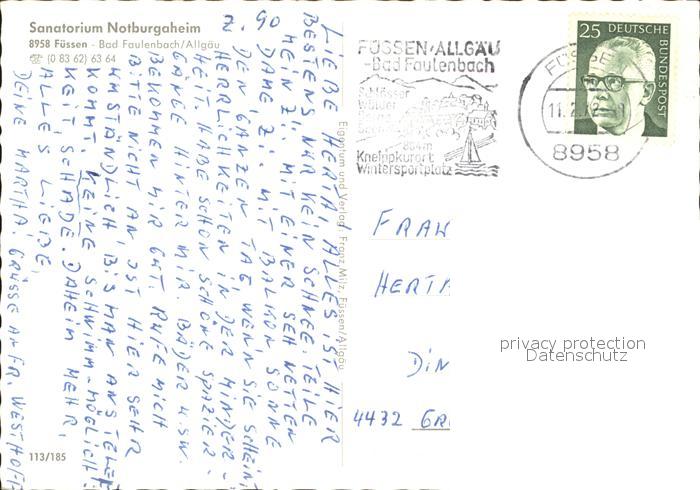 Sanatorium Notburgaheim
8958 Füssen - Bad Faulenbach/Allgäu
☎ (0 83 62) 63 64
LIEBE HERTA, ALLES IST HIER
BESTENS, NUR KEIN SCHNEE. TEILE
MEIN Zi. MIT EINER SEH NETTEN
DAME, Zi. MIT BALKON SONNE
DEN GANZEN TAG, WENN SIE SCHEINT
Z. go
HERRLICHKEITEN IN DER MINDER-
HEIT. HABE SCHON SCHÖNE SPAZIER-
GÄNGE HINTER MIR. BÄDER u.s.w.
BEKOMMEN MIR GUT. RUFE MICH
BITTE NICHT AN, IST HIER SEHR
UMSTÄNDLICH, BIS MAN ANS TELEF.
KOMMT. KEINE SCHWIMM-MÖGLICH-
KEIT, SCHADE. DAHEIM MEHR,
ALLES LIEBE,
DEINE MARTHA. GRÜSSE AN FR. WESTHOFF
113/185
Eigentum und Verlag Franz Milz, Füssen/Allgäu
FÜSSEN/ALLGÄU
-Bad Faulenbach
Schlösser
Wälder
804m
Kneippkurort
Wintersportplatz
FÜSSE
11.2.72
8958
25 DEUTSCHE
BUNDESPOST
FRAU
HERTA
DIN
4432 GR
privacy protection
Datenschutz